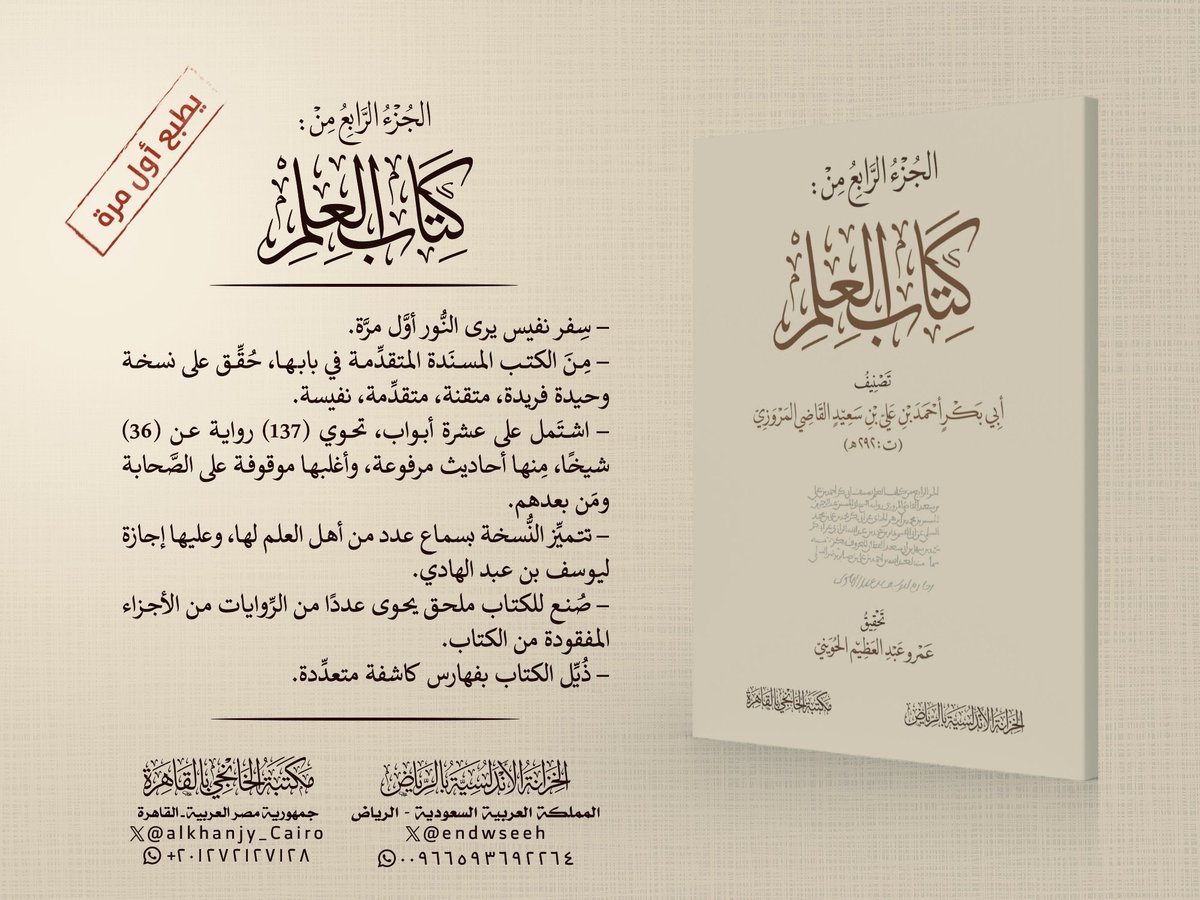 يطبع أول مرة
الجُزْءُ الرَّابِعُ مِنْ:
كِتَابِ العِلْمِ
– سِفر نفيس يرى النُّور أوَّل مرَّة.
– مِنَ الكتب المسنَدة المتقدِّمة في بابها، حُقِّق على نسخة
وحيدة فريدة، متقنة، متقدِّمة، نفيسة.
– اشتَمل على عشرة أبواب، تحوي (137) رواية عن (36)
شيخًا، مِنها أحاديث مرفوعة، وأغلبها موقوفة على الصَّحابة
ومَن بعدهم.
– تتميِّز النُّسخة بسماع عدد من أهل العلم لها، وعليها إجازة
ليوسف بن عبد الهادي.
– صُنع للكتاب ملحق يحوى عددًا من الرِّوايات من الأجزاء
المفقودة من الكتاب.
– ذُيِّل الكتاب بفهارس كاشفة متعدِّدة.
الخزانة الأندلسية بالرياض
المملكة العربية السعودية - الرياض
@endwseeh
٠٠٩٦٦٥٩٣٦٩٢٢٦٤
مكتبة الخانجي بالقاهرة
جمهورية مصر العربية - القاهرة
@alkhanjy_Cairo
+٢٠١٢٧٢١٢٧١٢٨
الجُزْءُ الرَّابِعُ مِنْ:
كِتَابِ العِلْمِ
تَصْنِيفُ
أَبِي بَكْرٍ أَحْمَدَ بْنِ عَلِيِّ بْنِ سَعِيْدٍ القَاضِي المَرْوَزِيّ
(ت: ٢٩٢هـ)
تَحْقِيْقُ
عَمْرو عَبْدِ العَظِيْم الحُوَيْنِي
الخزانة الأندلسية بالرياض
مكتبة الخانجي بالقاهرة